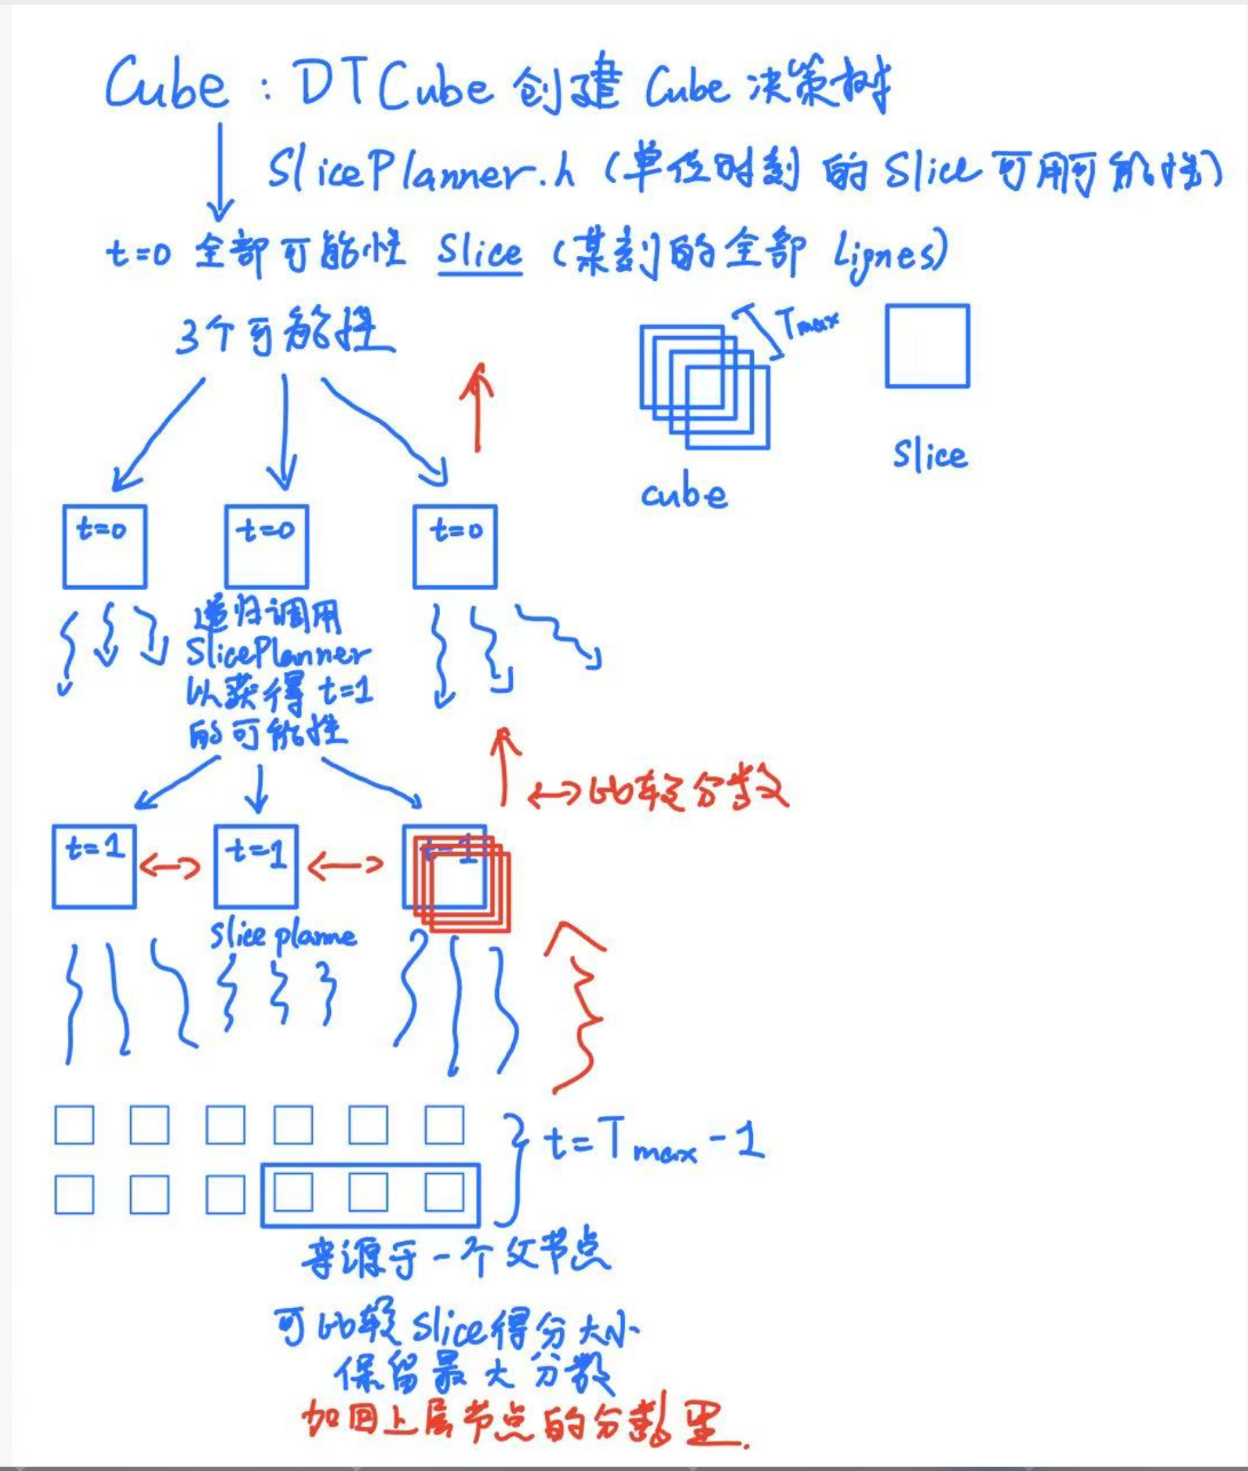 Cube : DTCube 创建 Cube 决策树
SlicePlanner.h (单位时刻 的 Slice 可用可能性)
t=0 全部可能性 Slice (某刻的全部 Lignes)
3个可能性
Tmax
cube
Slice
t=0
t=0
t=0
递归调用
SlicePlanner
以获得 t=1
的可能性
↔比较分数
t=1
t=1
t=1
slice planne
t=Tmax-1
来源于一个父节点
可比较slice得分大小
保留最大分数
加回上层节点的分数里.